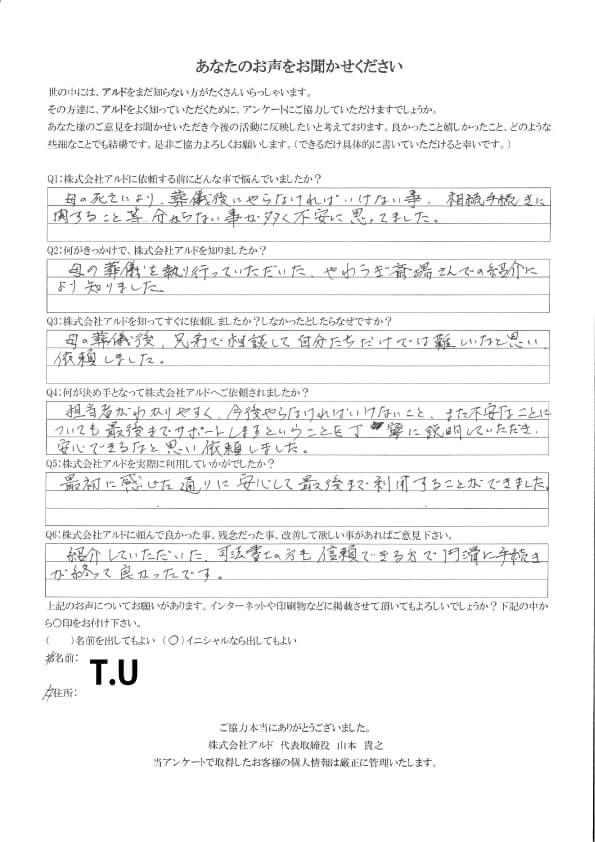 あなたのお声をお聞かせください
世の中には、アルドをまだ知らない方がたくさんいらっしゃいます。
その方達に、アルドをよく知っていただくために、アンケートにご協力していただけますでしょうか。
あなた様のご意見をお聞かせいただき今後の活動に反映したいと考えております。良かったこと嬉しかったこと、どのような
些細なことでも結構です。是非ご協力よろしくお願いします。（できるだけ具体的に書いていただけると幸いです。）
Q1：株式会社アルドに依頼する前にどんな事で悩んでいましたか？
母の死亡により、葬儀後にやらなければいけない事、相続手続きに
関すること等、分からない事が多く不安に思ってました。
Q2：何がきっかけで、株式会社アルドを知りましたか？
母の葬儀を執り行っていただいた、やわらぎ斎場さんでの紹介に
より知りました。
Q3：株式会社アルドを知ってすぐに依頼しましたか？しなかったとしたらなぜですか？
母の葬儀後、兄弟で相談して自分たちだけでは難しいなと思い、
依頼しました。
Q4：何が決め手となって株式会社アルドへご依頼されましたか？
担当者がわかりやすく、今後やらなければいけないこと、また不安なことに
ついても最後までサポートしますということを丁寧に説明していただき、
安心できるなと思い依頼しました。
Q5：株式会社アルドを実際に利用していかがでしたか？
最初に感じた通りに安心して最後まで利用することができました。
Q6：株式会社アルドに頼んで良かった事、残念だった事、改善して欲しい事があればご意見下さい。
紹介していただいた、司法書士の方も信頼できる方で円滑に手続き
が終って良かったです。
上記のお声についてお願いがあります。インターネットや印刷物などに掲載させて頂いてもよろしいでしょうか？下記の中か
ら○印をお付け下さい。
（　）名前を出してもよい（○）イニシャルなら出してもよい
お名前：
T.U
ご住所：
ご協力本当にありがとうございました。
株式会社アルド 代表取締役 山本 貴之
当アンケートで取得したお客様の個人情報は厳正に管理いたします。